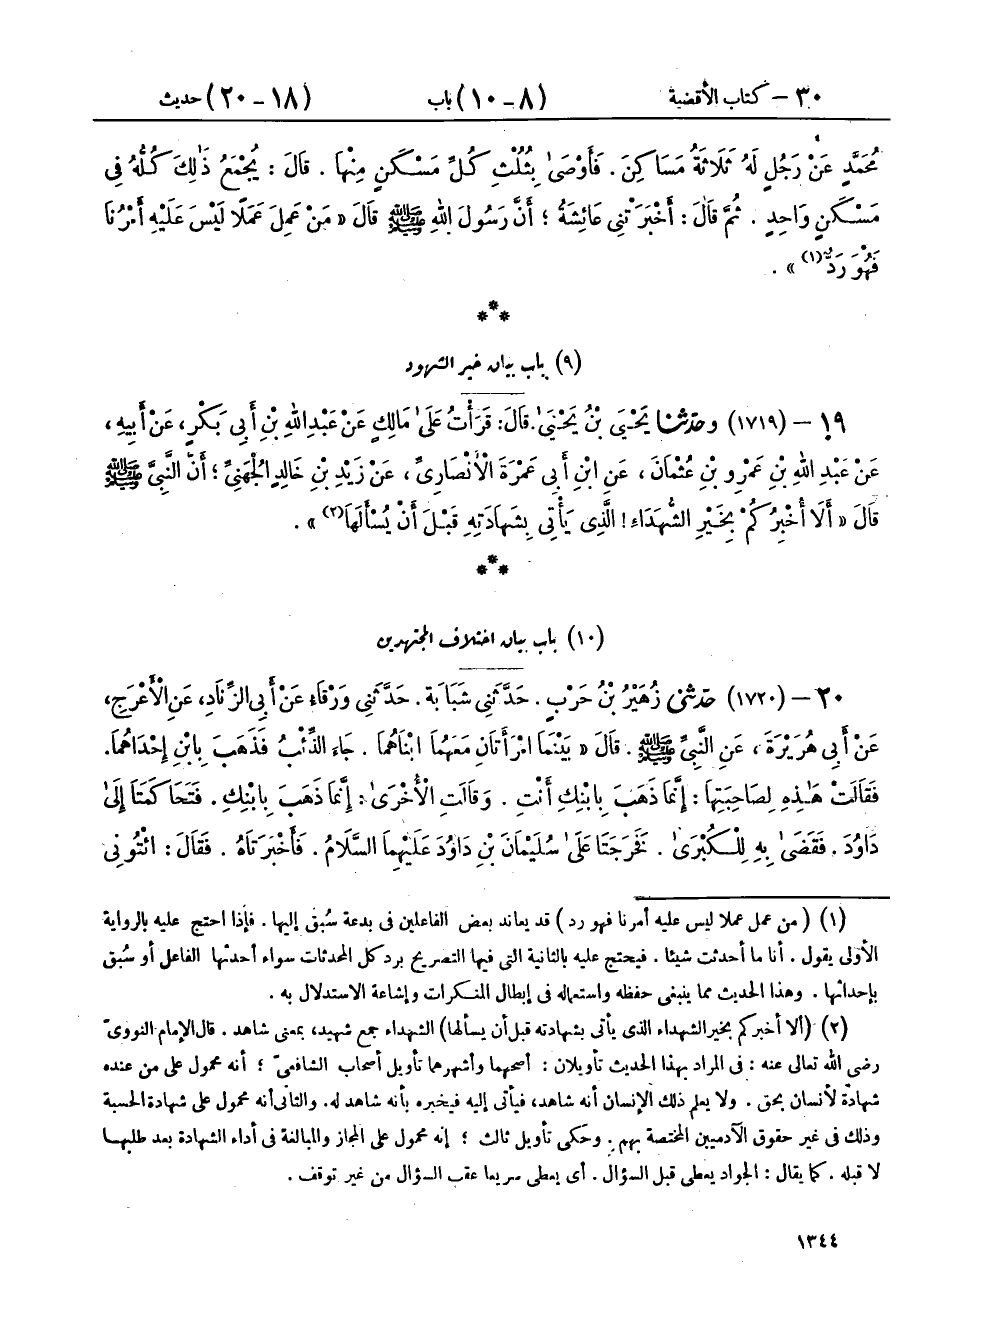 ٣٠ – كتاب الأقضية (٨ – ١٠) باب (١٨ – ٢٠) حديث
مُحَمَّدٍ عَنْ رَجُلٍ لَهُ ثَلَاثَةُ مَسَاكِنَ . فَأَوْصَىٰ بِثُلُثِ كُلِّ مَسْكَنٍ مِنْهَا . قَالَ : يُجْمَعُ ذَٰلِكَ كُلُّهُ فِي
مَسْكَنٍ وَاحِدٍ . ثُمَّ قَالَ : أَخْبَرَتْنِي عَائِشَةُ ؛ أَنَّ رَسُولَ اللهِ ﷺ قَالَ « مَنْ عَمِلَ عَمَلًا لَيْسَ عَلَيْهِ أَمْرُنَا
فَهُوَ رَدٌّ(١) » .
***
(٩) باب بيان خير الشهود
١٩ – (١٧١٩) وحَدَّثَنَا يَحْيَى بْنُ يَحْيَىٰ . قَالَ : قَرَأْتُ عَلَىٰ مَالِكٍ عَنْ عَبْدِ اللهِ بْنِ أَبِي بَكْرٍ ، عَنْ أَبِيهِ ،
عَنْ عَبْدِ اللهِ بْنِ عَمْرِو بْنِ عُثْمَانَ ، عَنِ ابْنِ أَبِي عَمْرَةَ الْأَنْصَارِيِّ ، عَنْ زَيْدِ بْنِ خَالِدٍ الْجُهَنِيِّ ؛ أَنَّ النَّبِيَّ ﷺ
قَالَ « أَلَا أُخْبِرُكُمْ بِخَيْرِ الشُّهَدَاءِ ! الَّذِي يَأْتِي بِشَهَادَتِهِ قَبْلَ أَنْ يُسْأَلَهَا(٢) » .
***
(١٠) باب بيان اختلاف المجتهدين
٢٠ – (١٧٢٠) حَدَّثَنِي زُهَيْرُ بْنُ حَرْبٍ . حَدَّثَنِي شَبَابَةُ . حَدَّثَنِي وَرْقَاءُ عَنْ أَبِي الزِّنَادِ ، عَنِ الْأَعْرَجِ ،
عَنْ أَبِي هُرَيْرَةَ ، عَنِ النَّبِيِّ ﷺ . قَالَ « بَيْنَمَا امْرَأَتَانِ مَعَهُمَا ابْنَاهُمَا . جَاءَ الذِّئْبُ فَذَهَبَ بِابْنِ إِحْدَاهُمَا .
فَقَالَتْ هَٰذِهِ لِصَاحِبَتِهَا : إِنَّمَا ذَهَبَ بِابْنِكِ أَنْتِ . وَقَالَتِ الْأُخْرَىٰ : إِنَّمَا ذَهَبَ بِابْنِكِ . فَتَحَاكَمَتَا إِلَىٰ
دَاوُدَ . فَقَضَىٰ بِهِ لِلْكُبْرَىٰ . فَخَرَجَتَا عَلَىٰ سُلَيْمَانَ بْنِ دَاوُدَ عَلَيْهِمَا السَّلَامُ . فَأَخْبَرَتَاهُ . فَقَالَ : ائْتُونِي
(١) ( من عمل عملا ليس عليه أمرنا فهو رد ) قد يعاند بعض الفاعلين فى بدعة سُبق إليها . فإذا احتج عليه بالرواية
الأولى يقول . أنا ما أحدثت شيئا . فيحتج عليه بالثانية التى فيها التصريح برد كل المحدثات سواء أحدثها الفاعل أو سُبق
بإحداثها . وهذا الحديث مما ينبغى حفظه واستعماله فى إبطال المنكرات وإشاعة الاستدلال به .
(٢) (ألا أخبركم بخير الشهداء الذى يأتى بشهادته قبل أن يسألها) الشهداء جمع شهيد، بمعنى شاهد . قال الإمام النووىّ
رضى الله تعالى عنه : فى المراد بهذا الحديث تأويلان : أصحهما وأشهرهما تأويل أصحاب الشافعىّ ؛ أنه محمول على من عنده
شهادة لأنسان بحق . ولا يعلم ذلك الإنسان أنه شاهد، فيأتى إليه فيخبره بأنه شاهد له. والثانى أنه محمول على شهادة الحسبة
وذلك فى غير حقوق الآدميين المختصة بهم . وحكى تأويل ثالث ؛ إنه محمول على المجاز والمبالغة فى أداء الشهادة بعد طلبها
لا قبله . كما يقال : الجواد يعطى قبل السؤال . أى يعطى سريعا عقب السؤال من غير توقف .
١٣٤٤